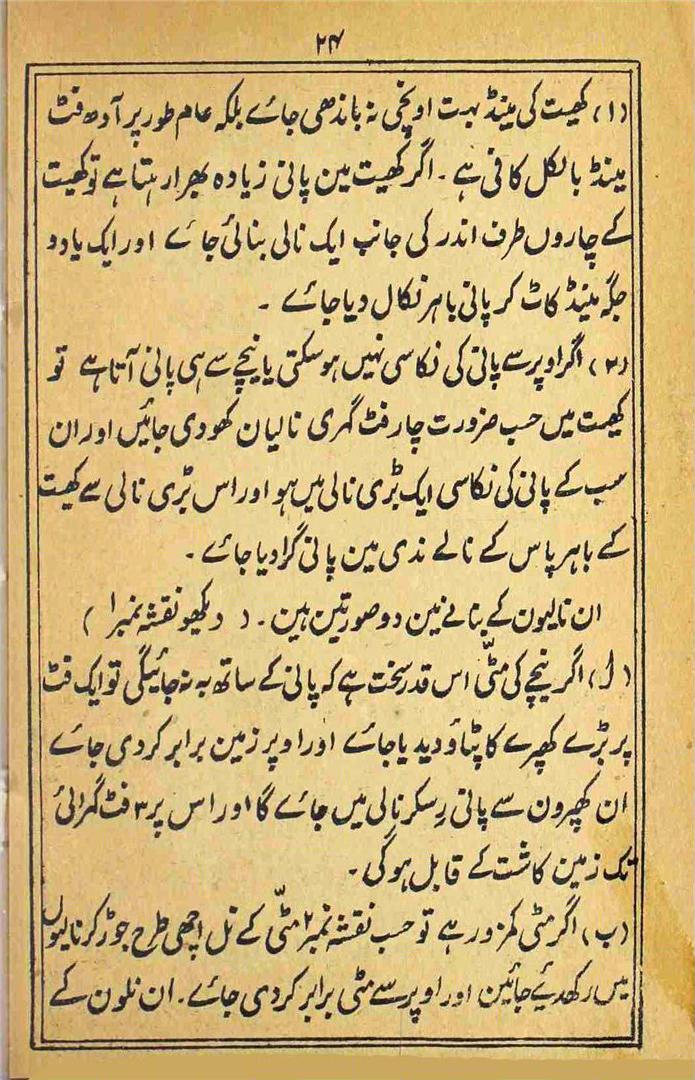 ۲۴
(۱) کھیت کی مینڈ بہت اونچی نہ باندھی جاے بلکہ عام طور پر آدھ فٹ
مینڈ بالکل کافی ہے ۔ اگر کھیت مین پانی زیادہ بھرا رہتا ہے تو کھیت
کے چاروں طرف اندر کی جانب ایک نالی بنائی جاے اور ایک یا دو
جگہ مینڈ کاٹ کر پانی باہر نکال دیا جاے ۔
(۲) اگر اوپر سے پانی کی نکاسی نہیں ہوسکتی یا نیچے سے ہی پانی آتا ہے تو
کھیت میں حسب ضرورت چار فٹ گہری نالیان کھودی جائیں اور ان
سب کے پانی کی نکاسی ایک بڑی نالی میں ہو اور اس بڑی نالی سے کھیت
کے باہر پاس کے نالے ندی مین پانی گرا دیا جاے ۔
ان نالیون کے بنانے مین دو صورتین ہین ۔ ( دیکھو نقشہ نمبر ۱ )
(ا) اگر نیچے کی مٹّی اس قدر سخت ہے کہ پانی کے ساتھ بہ نہ جائیگی تو ایک فٹ
پر بڑے کھپرے کا پٹاؤ دیدیا جاے اور اوپر زمین برابر کردی جاے
ان کھپرون سے پانی رِسکر نالی میں جاے گا اور اس پر ۳ فٹ گہرائی
تک زمین کاشت کے قابل ہوگی ۔
(ب) اگر مٹی کمزور ہے تو حسب نقشہ نمبر ۲ مٹّی کے نل اچھی طرح جوڑ کر نالیوں
میں رکھدئے جائین اور اوپر سے مٹی برابر کردی جاے ۔ ان نلون کے